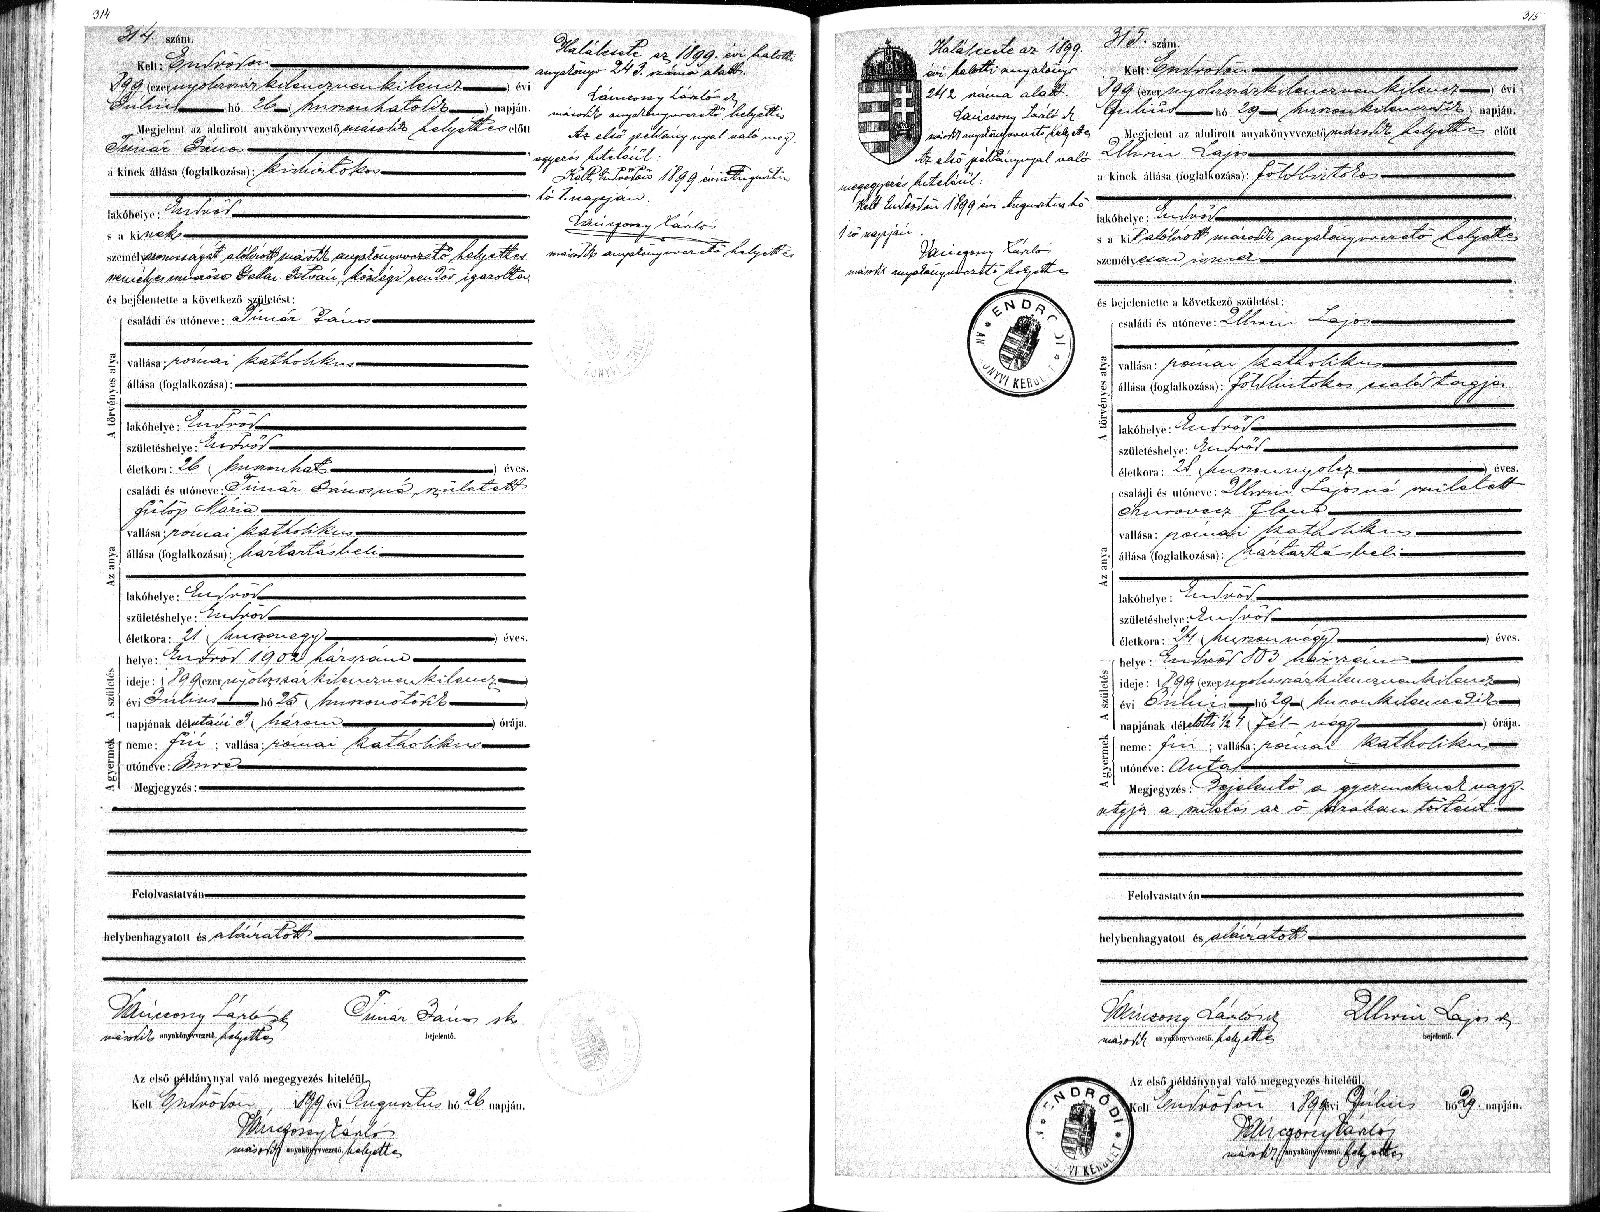 314
314 szám.
Kelt: Endrődön
899 (ezernyolczszázkilenczvenkilencz) évi
Julius hó 26 (huszonhatodik) napján.
Megjelent az alulirott anyakönyvvezető második helyettes előtt
Timár János
a kinek állása (foglalkozása): kisbirtokos
lakóhelye: Endrőd
s a kinek
személyazonosságát alólirott második anyakönyvvezető helyettes
István, községi rendőr igazolta
és bejelentette a következő születést:
A törvényes atya
családi és utóneve: Timár János
vallása: római katholikus
állása (foglalkozása):
lakóhelye: Endrőd
születéshelye: Endrőd
életkora: 26 (huszonhat) éves.
Az anya
családi és utóneve: Timár Jánosné, született
Fülöp Mária
vallása: római katholikus
állása (foglalkozása): háztartásbeli
lakóhelye: Endrőd
születéshelye: Endrőd
életkora: 21 (huszonegy) éves.
A születés
helye: Endrőd 1902 házszám
ideje: 1899 (ezernyolczszázkilenczvenkilencz)
évi Julius hó 25 (huszonötödik)
napjának délutáni 3 (három) órája.
A gyermek
neme: fiú; vallása: római katholikus
utóneve: Imre
Megjegyzés:
Felolvastatván
helybenhagyatott és aláiratott
László sk Timár János sk
második anyakönyvvezető helyettes bejelentő.
Az első példánynyal való megegyezés hiteléül.
Kelt Endrődön 1899 évi Augusztus hó 26 napján.
László
második anyakönyvvezető helyettes
Halálesete az 1899. évi halotti
anyakönyv 243. száma alatt.
László sk
második anyakönyvvezető helyettes
Az első példánynyal való meg-
egyezés hiteléül:
Kelt, Endrődön 1899 évi Augusztus
hó 1. napján.
László
második anyakönyvvezető helyettes
315
Halálesete az 1899.
évi halotti anyakönyv
242 száma alatt.
László sk
második anyakönyvvezető helyettes
Az első példánynyal való
megegyezés hiteléül:
Kelt Endrődön 1899 évi Augusztus hó
1ső napján.
László
második anyakönyvvezető helyettes
ENDRŐDI
ANYAKÖNYVI KERÜLET
315. szám.
Kelt: Endrődön
899 (ezernyolczszázkilenczvenkilencz) évi
Julius hó 29 (huszonkilenczedik) napján.
Megjelent az alulirott anyakönyvvezető második helyettes előtt
Uhrin Lajos
a kinek állása (foglalkozása): földbirtokos
lakóhelye: Endrőd
s a kit alólirott második anyakönyvvezető helyettes
személyesen ismer
és bejelentette a következő születést:
A törvényes atya
családi és utóneve: Uhrin Lajos
vallása: római katholikus
állása (foglalkozása): földbirtokos család tagja
lakóhelye: Endrőd
születéshelye: Endrőd
életkora: 28 (huszonnyolcz) éves.
Az anya
családi és utóneve: Uhrin Lajosné született
Ilona
vallása: római katholikus
állása (foglalkozása): háztartásbeli
lakóhelye: Endrőd
születéshelye: Endrőd
életkora: 24 (huszonnégy) éves.
A születés
helye: Endrőd 803 házszám
ideje: 1899 (ezernyolczszázkilenczvenkilencz)
évi Julius hó 29 (huszonkilenczedik)
napjának délelőtti ½ 4 (fél négy) órája.
A gyermek
neme: fiú; vallása: római katholikus
utóneve: Antal
Megjegyzés: Bejelentő a gyermeknek nagy-
atyja a születés az ő házában történt
Felolvastatván
helybenhagyatott és aláiratott
László sk Uhrin Lajos sk
második anyakönyvvezető helyettes bejelentő.
Az első példánynyal való megegyezés hiteléül.
Kelt Endrődön 1899 évi Julius hó 29. napján.
László
második anyakönyvvezető helyettes
ENDRŐDI
ANYAKÖNYVI KERÜLET